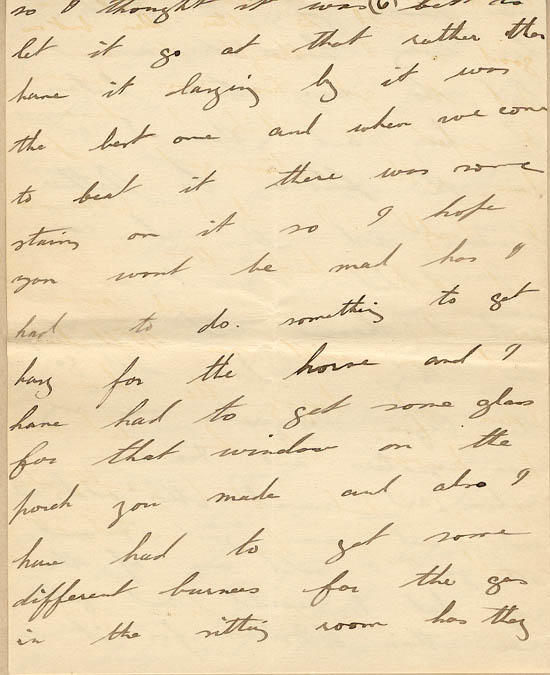 so I thought it was (6) best to
let it go at that rather then
have it laying by it was
the best one and when we come
to beat it there was some
stains on it so I hope
you wont be mad has I
had to do. something to get
hay for the horse and I
have had to get some glass
for that window on the
porch you made and also I
have had to get some
different burners for the gas
in the sitting room has they